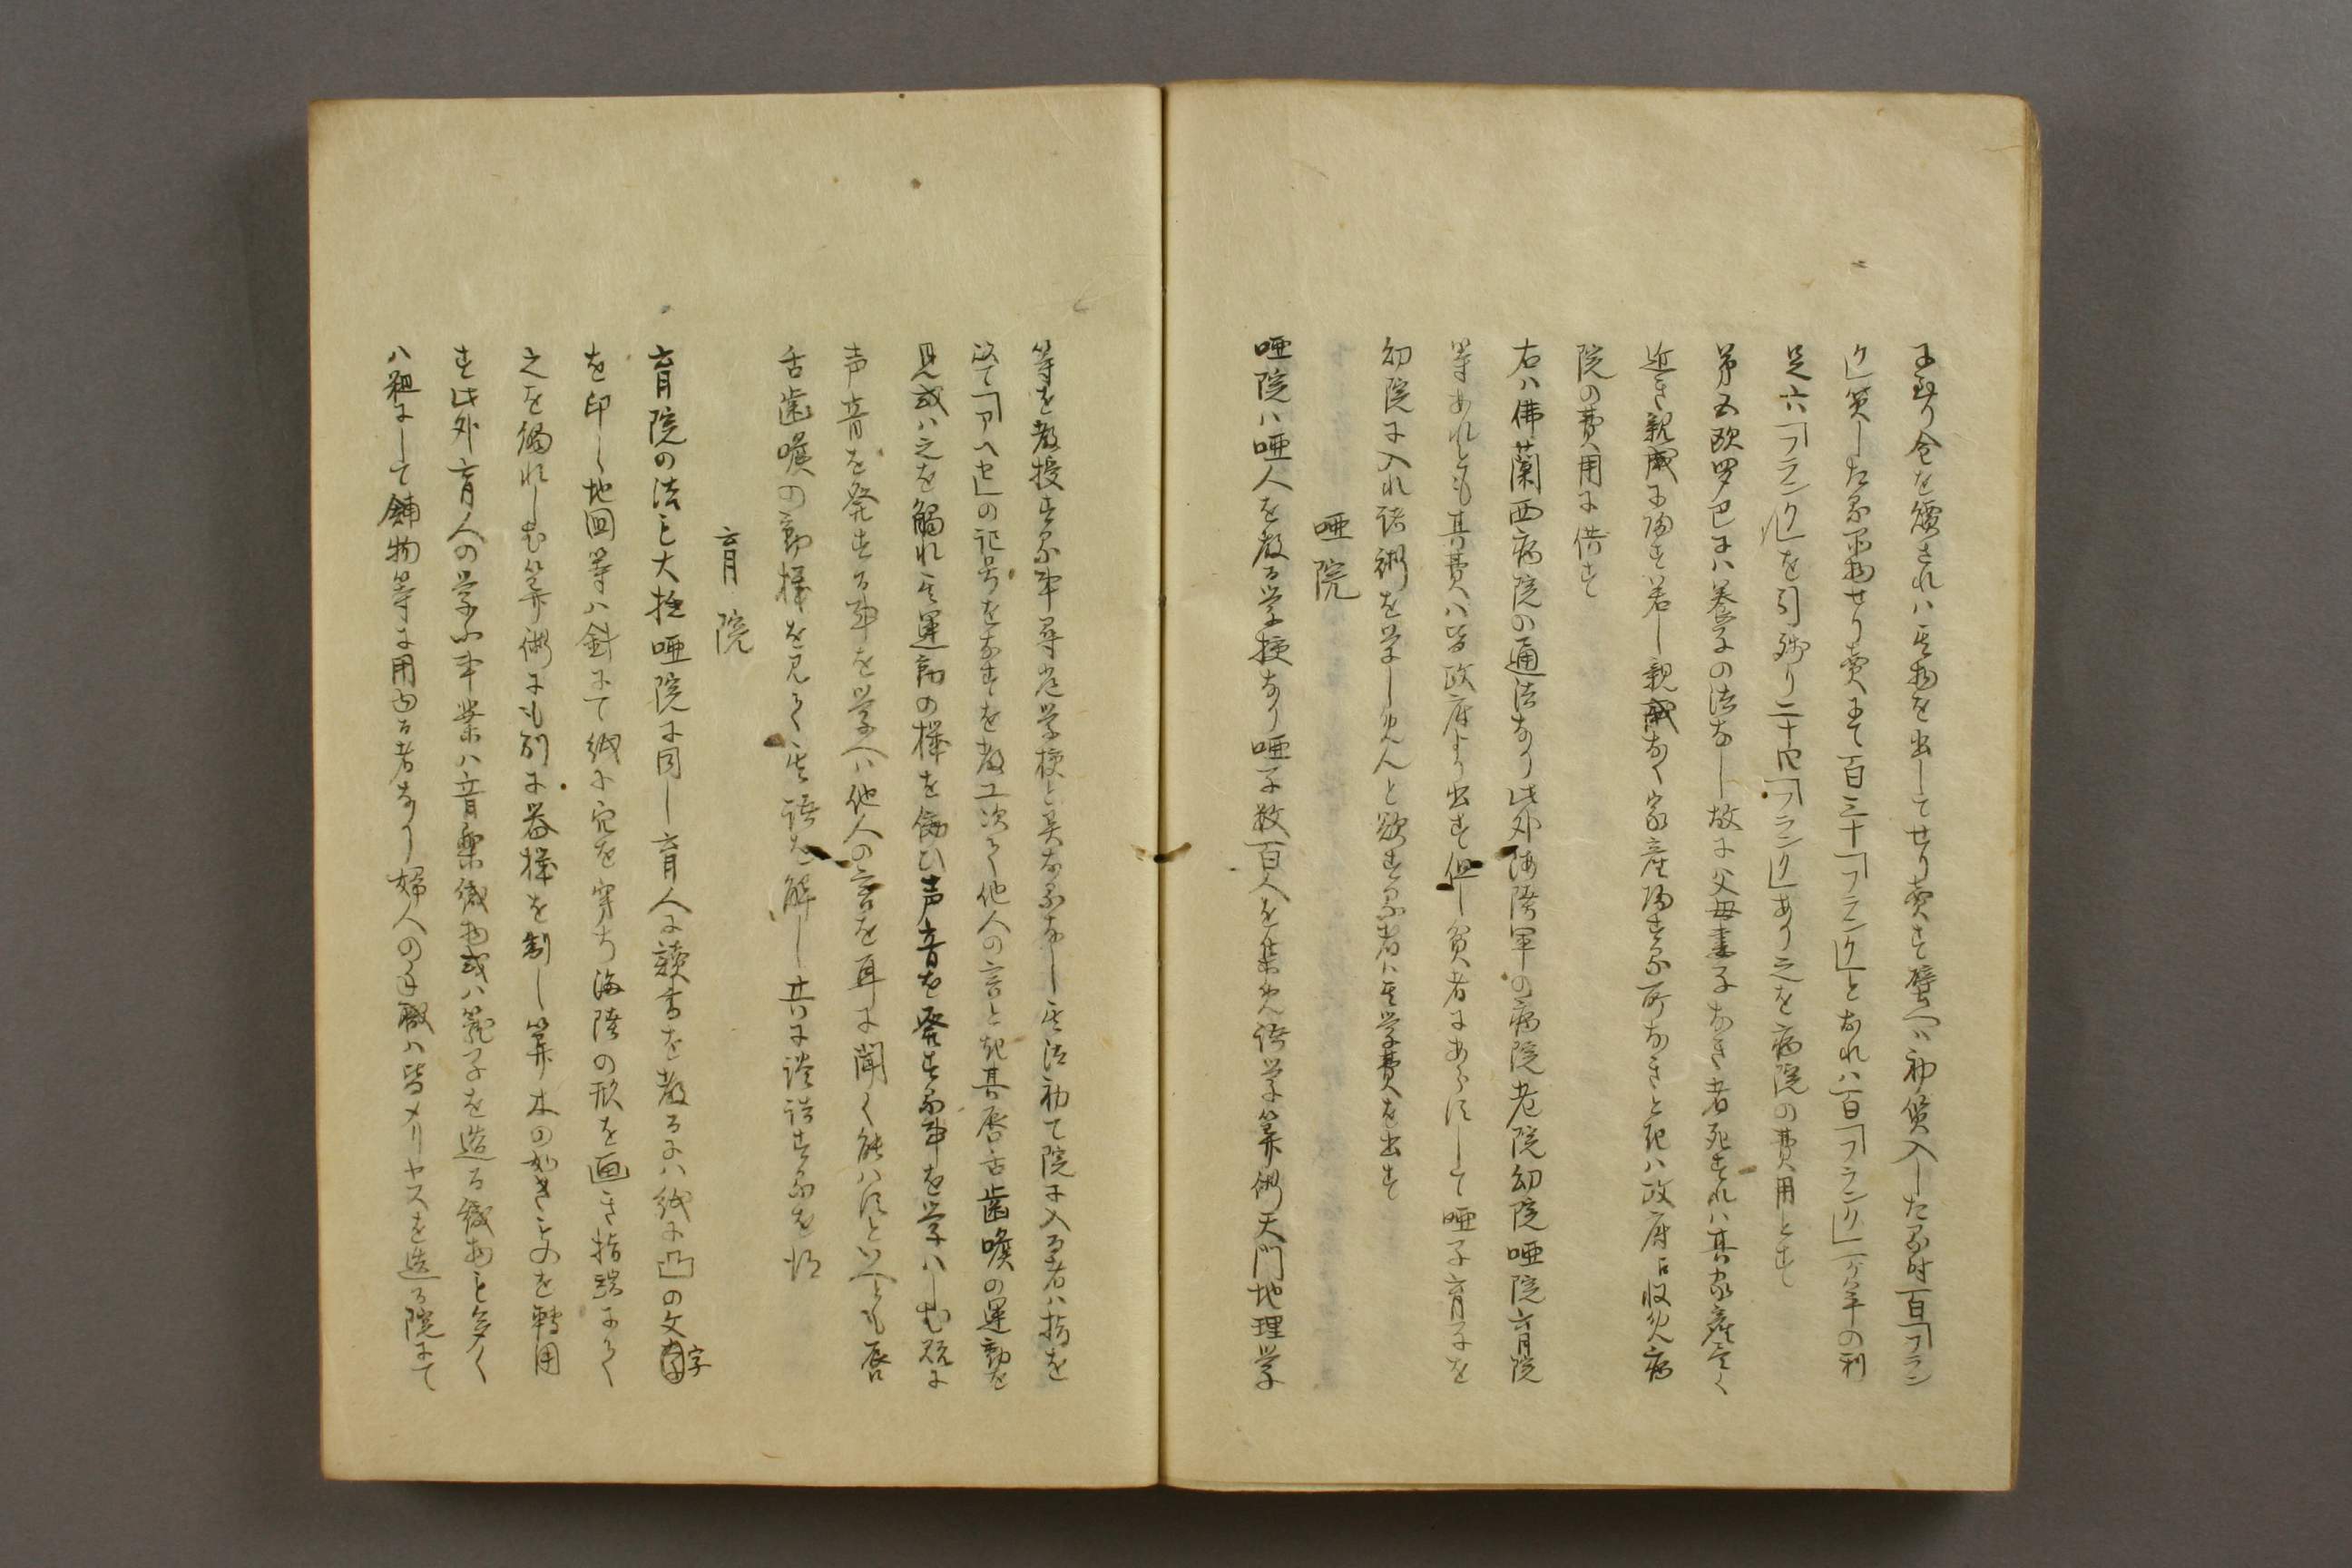 に至り金を償されハ其物を出してせり売す譬ヘバ初質入した る時百「フラン
ク」質したる品物せり売にて百三十「フランク」となれハ百「フランク」一ケ年の利
足六「フランク」を引残り二十四「フランク」あり之を病院の費用とす
第五欧罗巴にハ養子の法なし故に父母妻子なき者死すれハ其家産尽く
近き親戚に帰す若し親戚なく家産帰する所なきと記ハ政府に収め病
院の費用に供す
右ハ佛蘭西病院の通法なり此外海陸軍の病院老院幼院唖院盲院
等あれとも其費ハ皆政府より出す但し貧者にあらすして唖子盲子を
幼院に入れ諸術を学しめんと欲する者ハ其学費を出す
唖院
唖院ハ唖人を教る学校なり唖子数百人を集め語学算術天門地理学
等を教授する事尋常学校と異なるなし其法初て院に入る者ハ指を
以て「アベセ」の記号をなすを教工次て他人の言と記其唇舌歯喉の運動を
見或ハ之を觸れ其運動の様を傚ひ声音を発する事を学ハしむ既に
声音を発する事を学へハ他人の言を耳に聞く能ハすといへとも唇
舌歯喉の動様を見て其語を解し共に談話するを得
盲院
盲院の法も大抵唖院に同し盲人に讀書を教るにハ紙に凸の文字
を印し地図等ハ針にて紙に穴を穿ち海陸の形を画き指端にて
之を觸れしむ算術にも別に器様を制し算木の如きものを轉用
す此外盲人の学ふ事業ハ音楽織物或ハ籠子を造る織物も多く
ハ粗にして鋪物等に用ゆる者なり婦人の手職ハ皆メリヤスを造る院にて